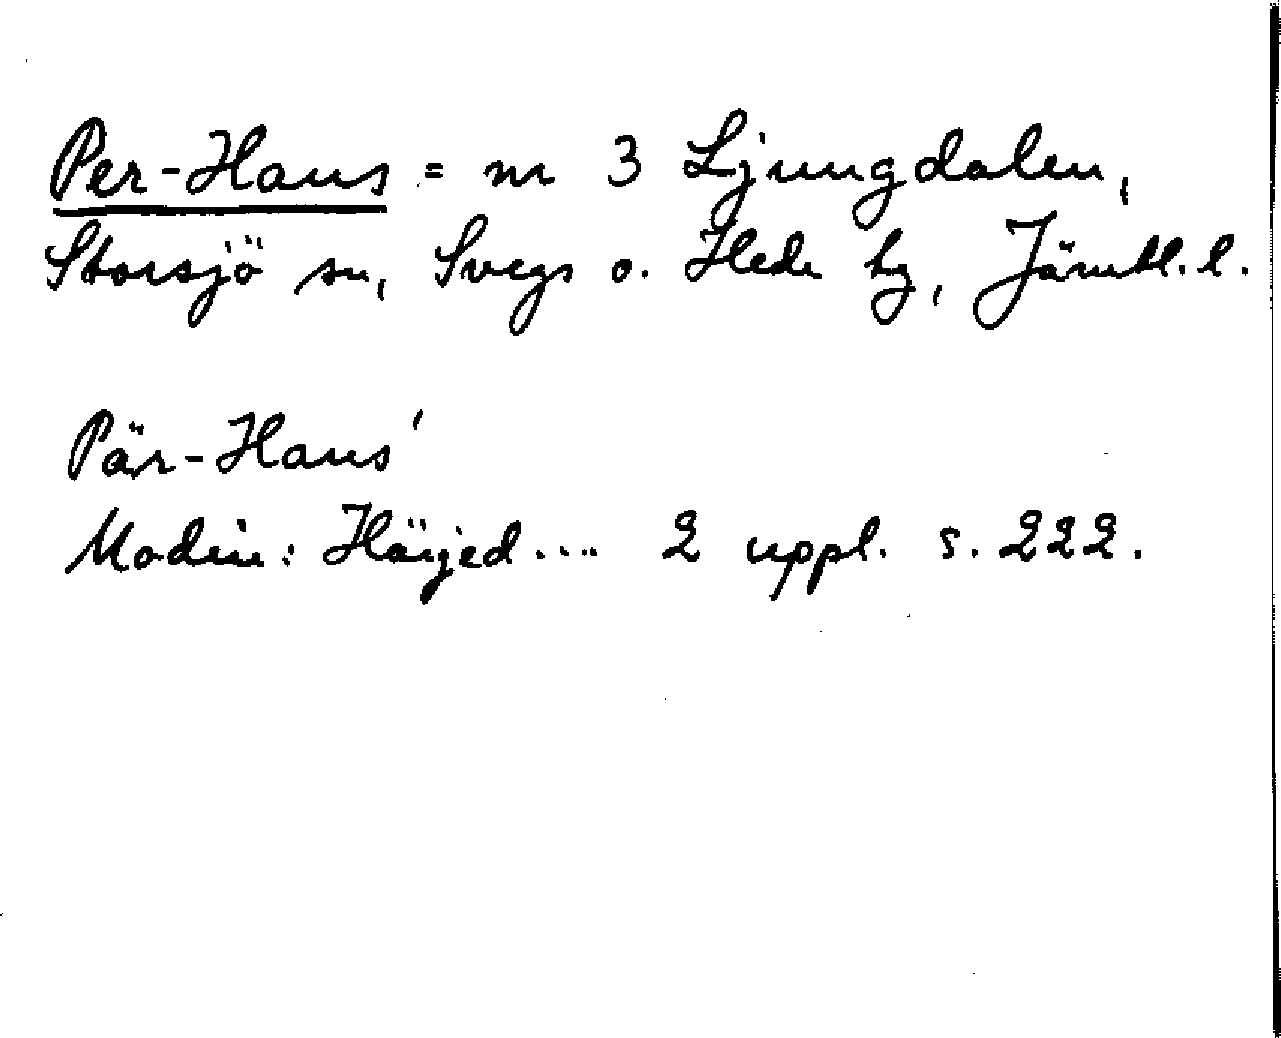 Per-Hans = nr 3 Ljungdalen,
Storsjö sn, Svegs o. Hede tg, Jämtl. l.
Pär-Hans'
Modin: Härjed.... 2 uppl. s. 222.